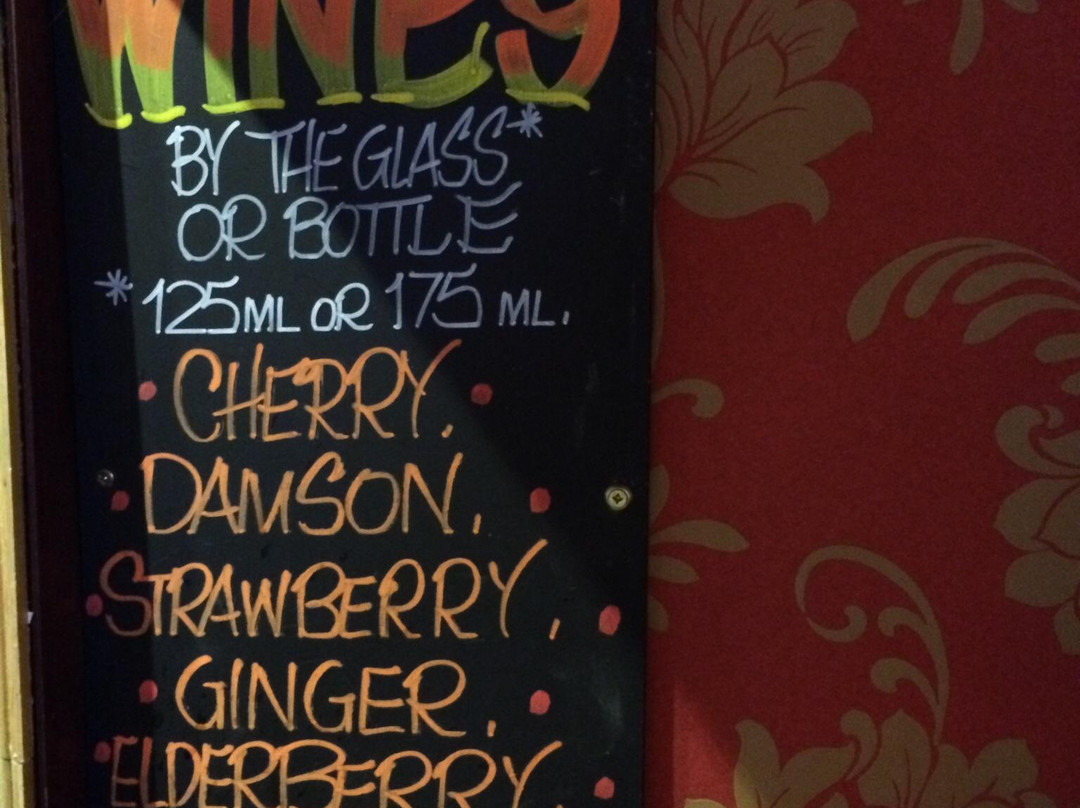 WINES
BY THE GLASS*
OR BOTTLE
*125ML OR 175 ML.
• CHERRY, •
• DAMSON, •
• STRAWBERRY, •
• GINGER, •
• ELDERBERRY, •